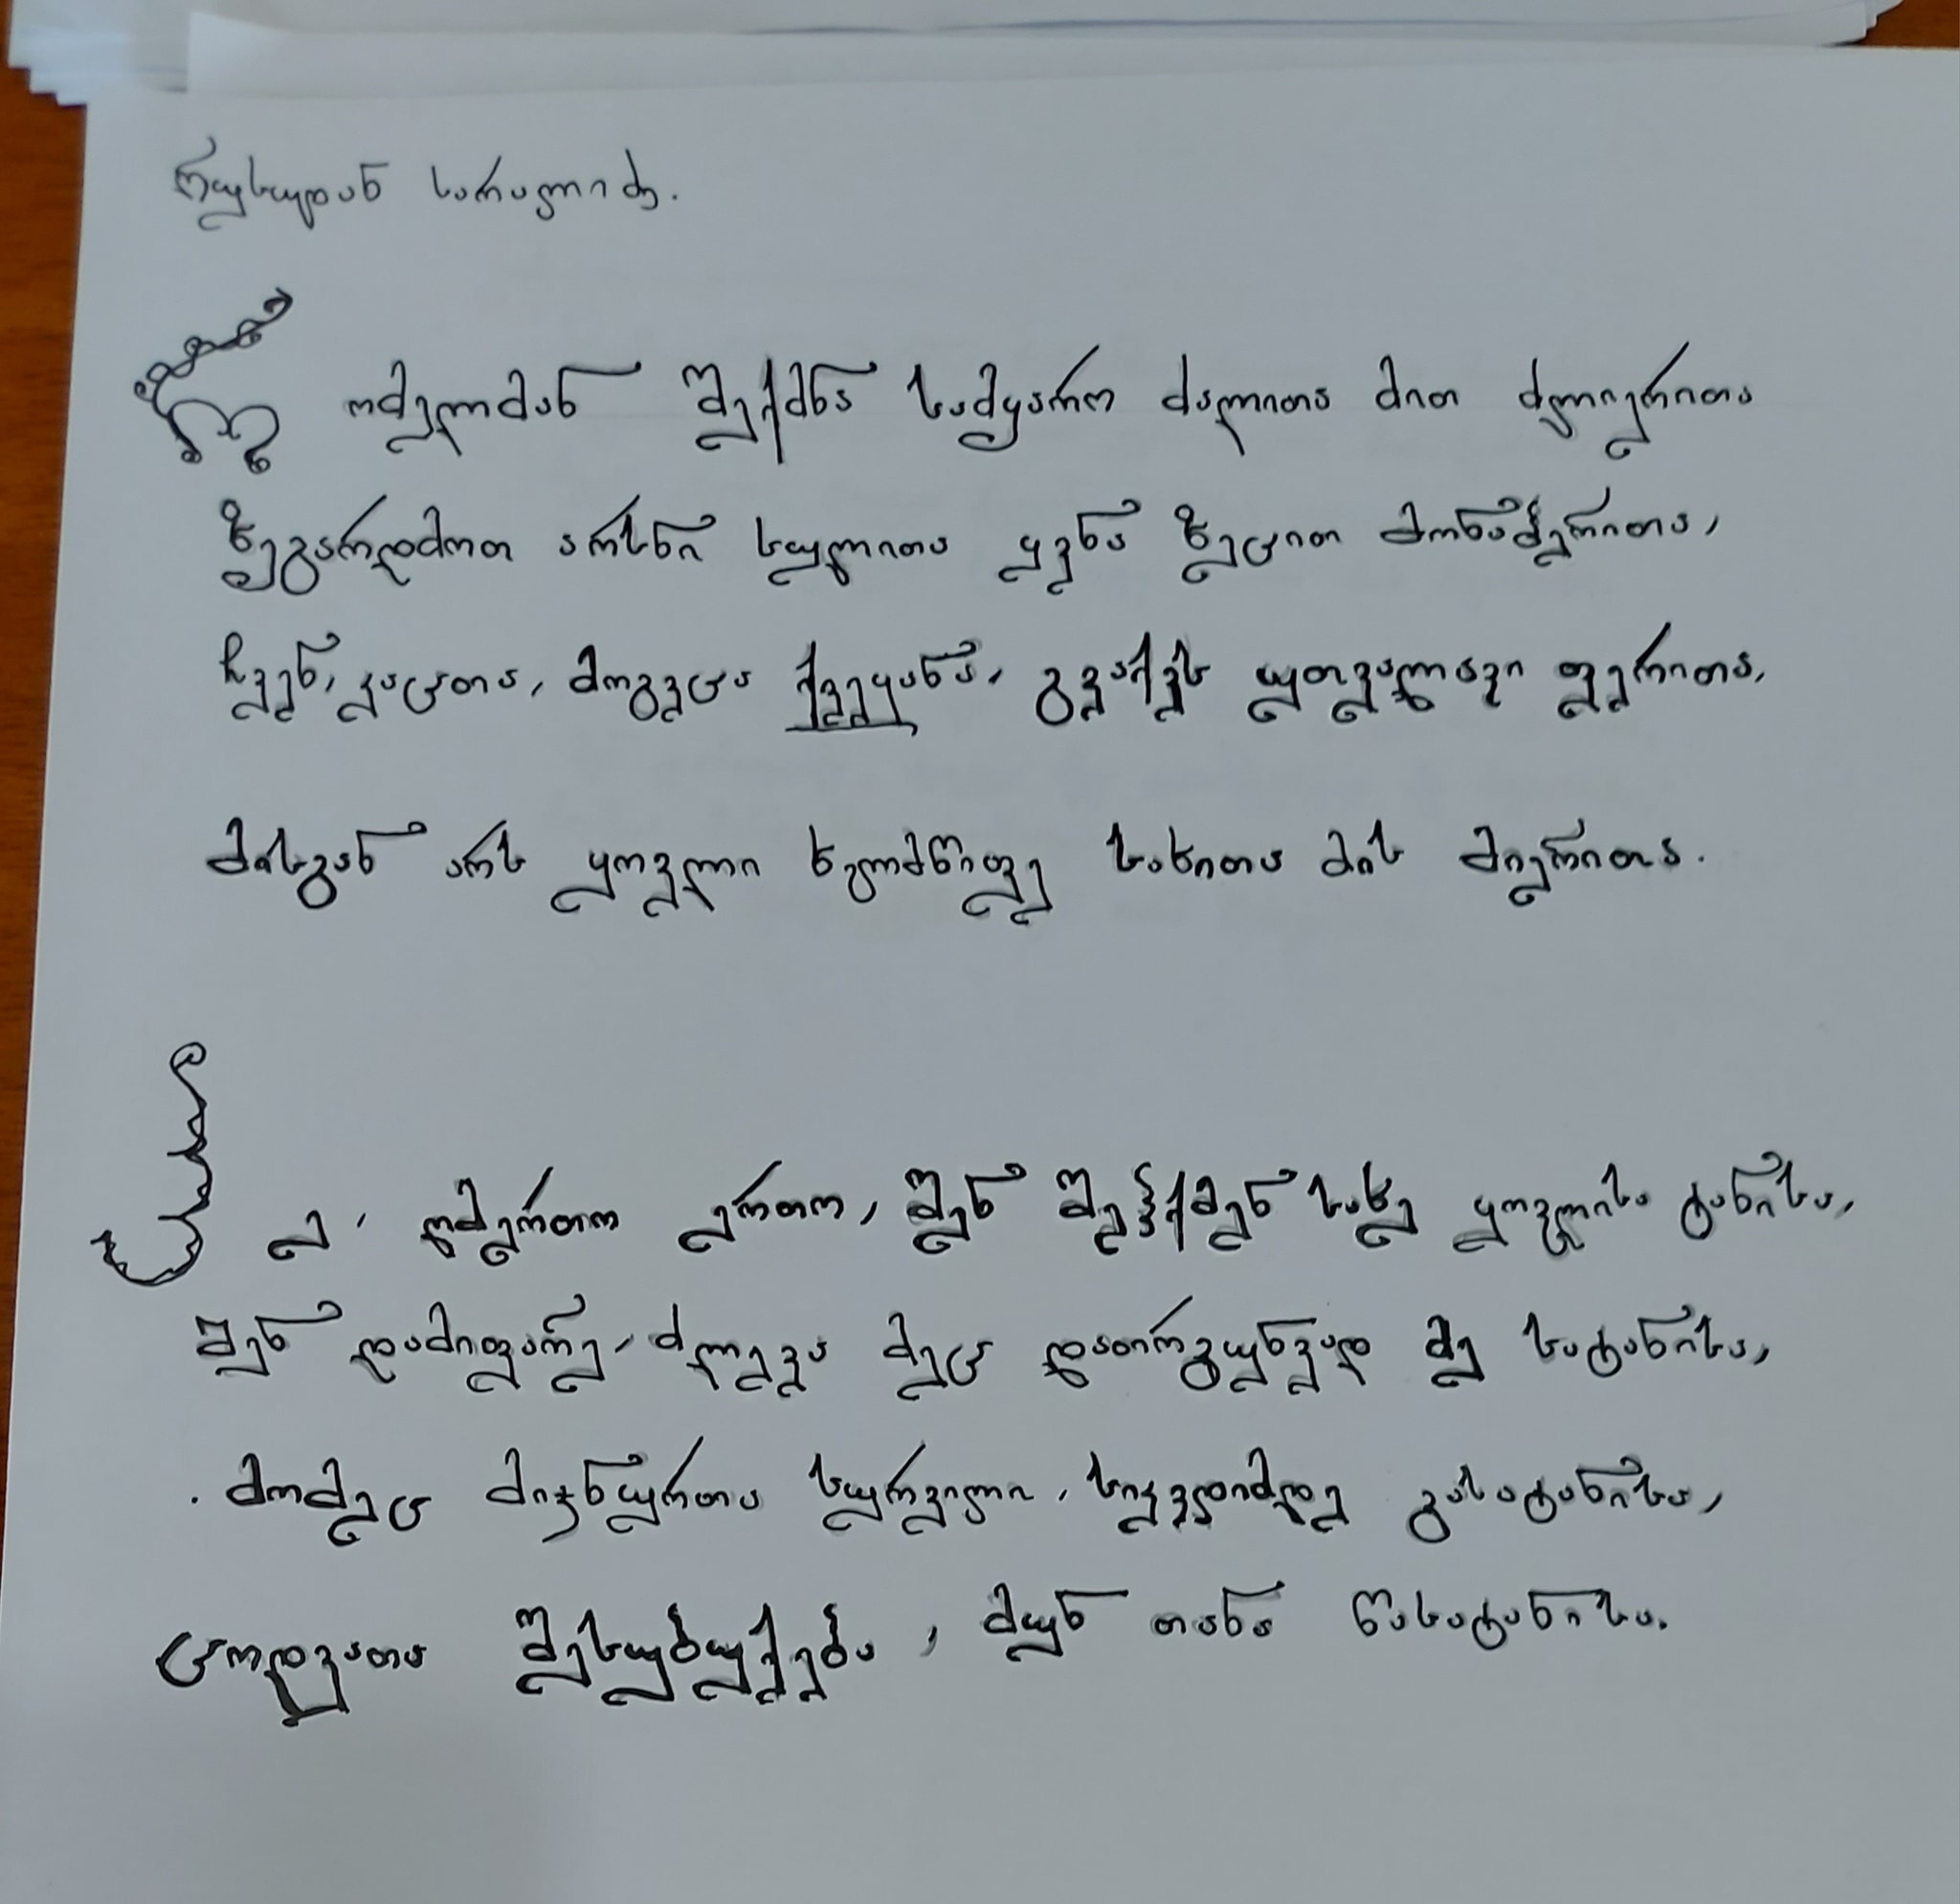 რუსუდან სარალიძე.
რომელმან შექმნა სამყარო ძალითა მით ძლიერითა
ზეგარდმოთ არსნი სულითა ყვნა ზეცით მონაბერითა,
ჩვენ, კაცთა, მოგვცა ქვეყანა, გვაქვს უთვალავი ფერითა,
მისგან არს ყოვლი ხელმწიფე სახითა მის მიერითა.
ჰე, ღმერთო ერთო, შენ შეჰქმენ სახე ყოვლისა ტანისა,
შენ დამიფარე, ძლევა მეც დათრგუნვად მე სატანისა,
. მომეც მიჯნურთა სურვილი, სიკვდიდმდე გასატანისა,
ცოდვათა შესუბუქება, მუნ თანა წასატანისა.